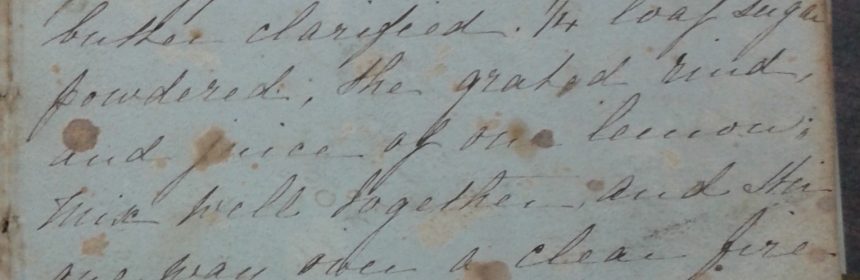 butter clarified. 1/4 loaf sugar
powdered, the grated rind,
and juice of one lemon;
mix well together, and stir
one way over a clear fire